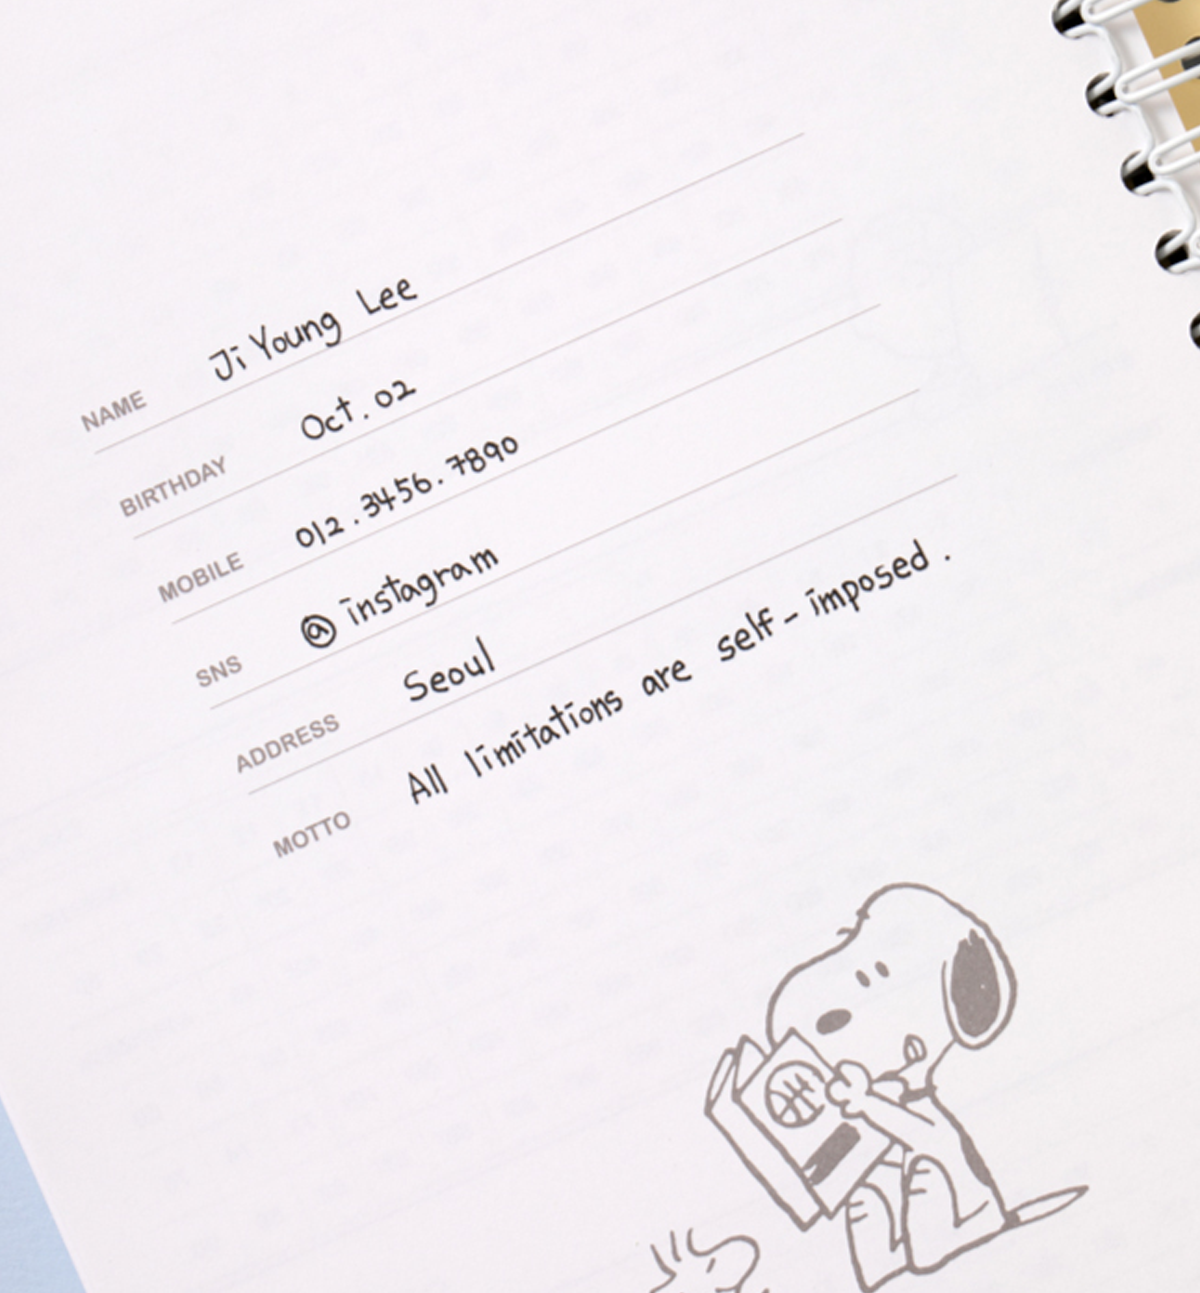 NAME Ji Young Lee
BIRTHDAY Oct. 02
MOBILE 012.3456.7890
SNS @instagram
ADDRESS Seoul
MOTTO All limitations are self-imposed.